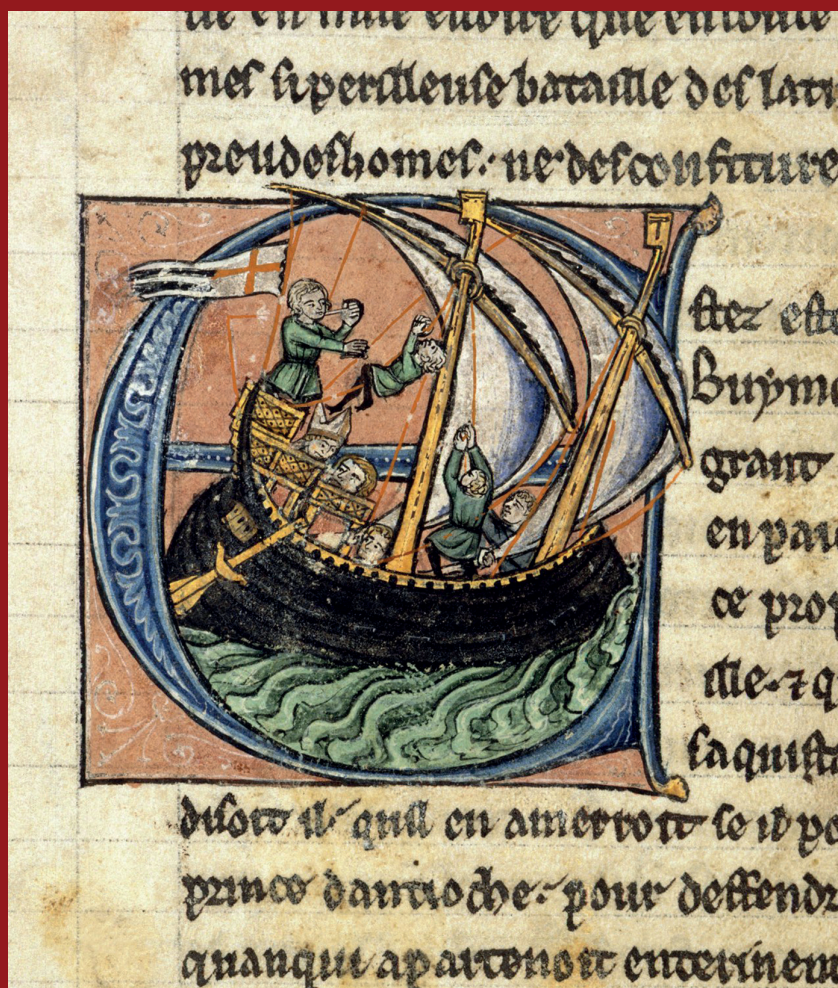 en nule que
mes si perilleuse bataille des lati
preudeshomes. ne desconfiture
Buymo
grant
en pai
ce pro
ille. ⁊ q
disoit il. quil en amerroit se il
prince dantioche. pour deffendr
quanqui apartenoit enterinem